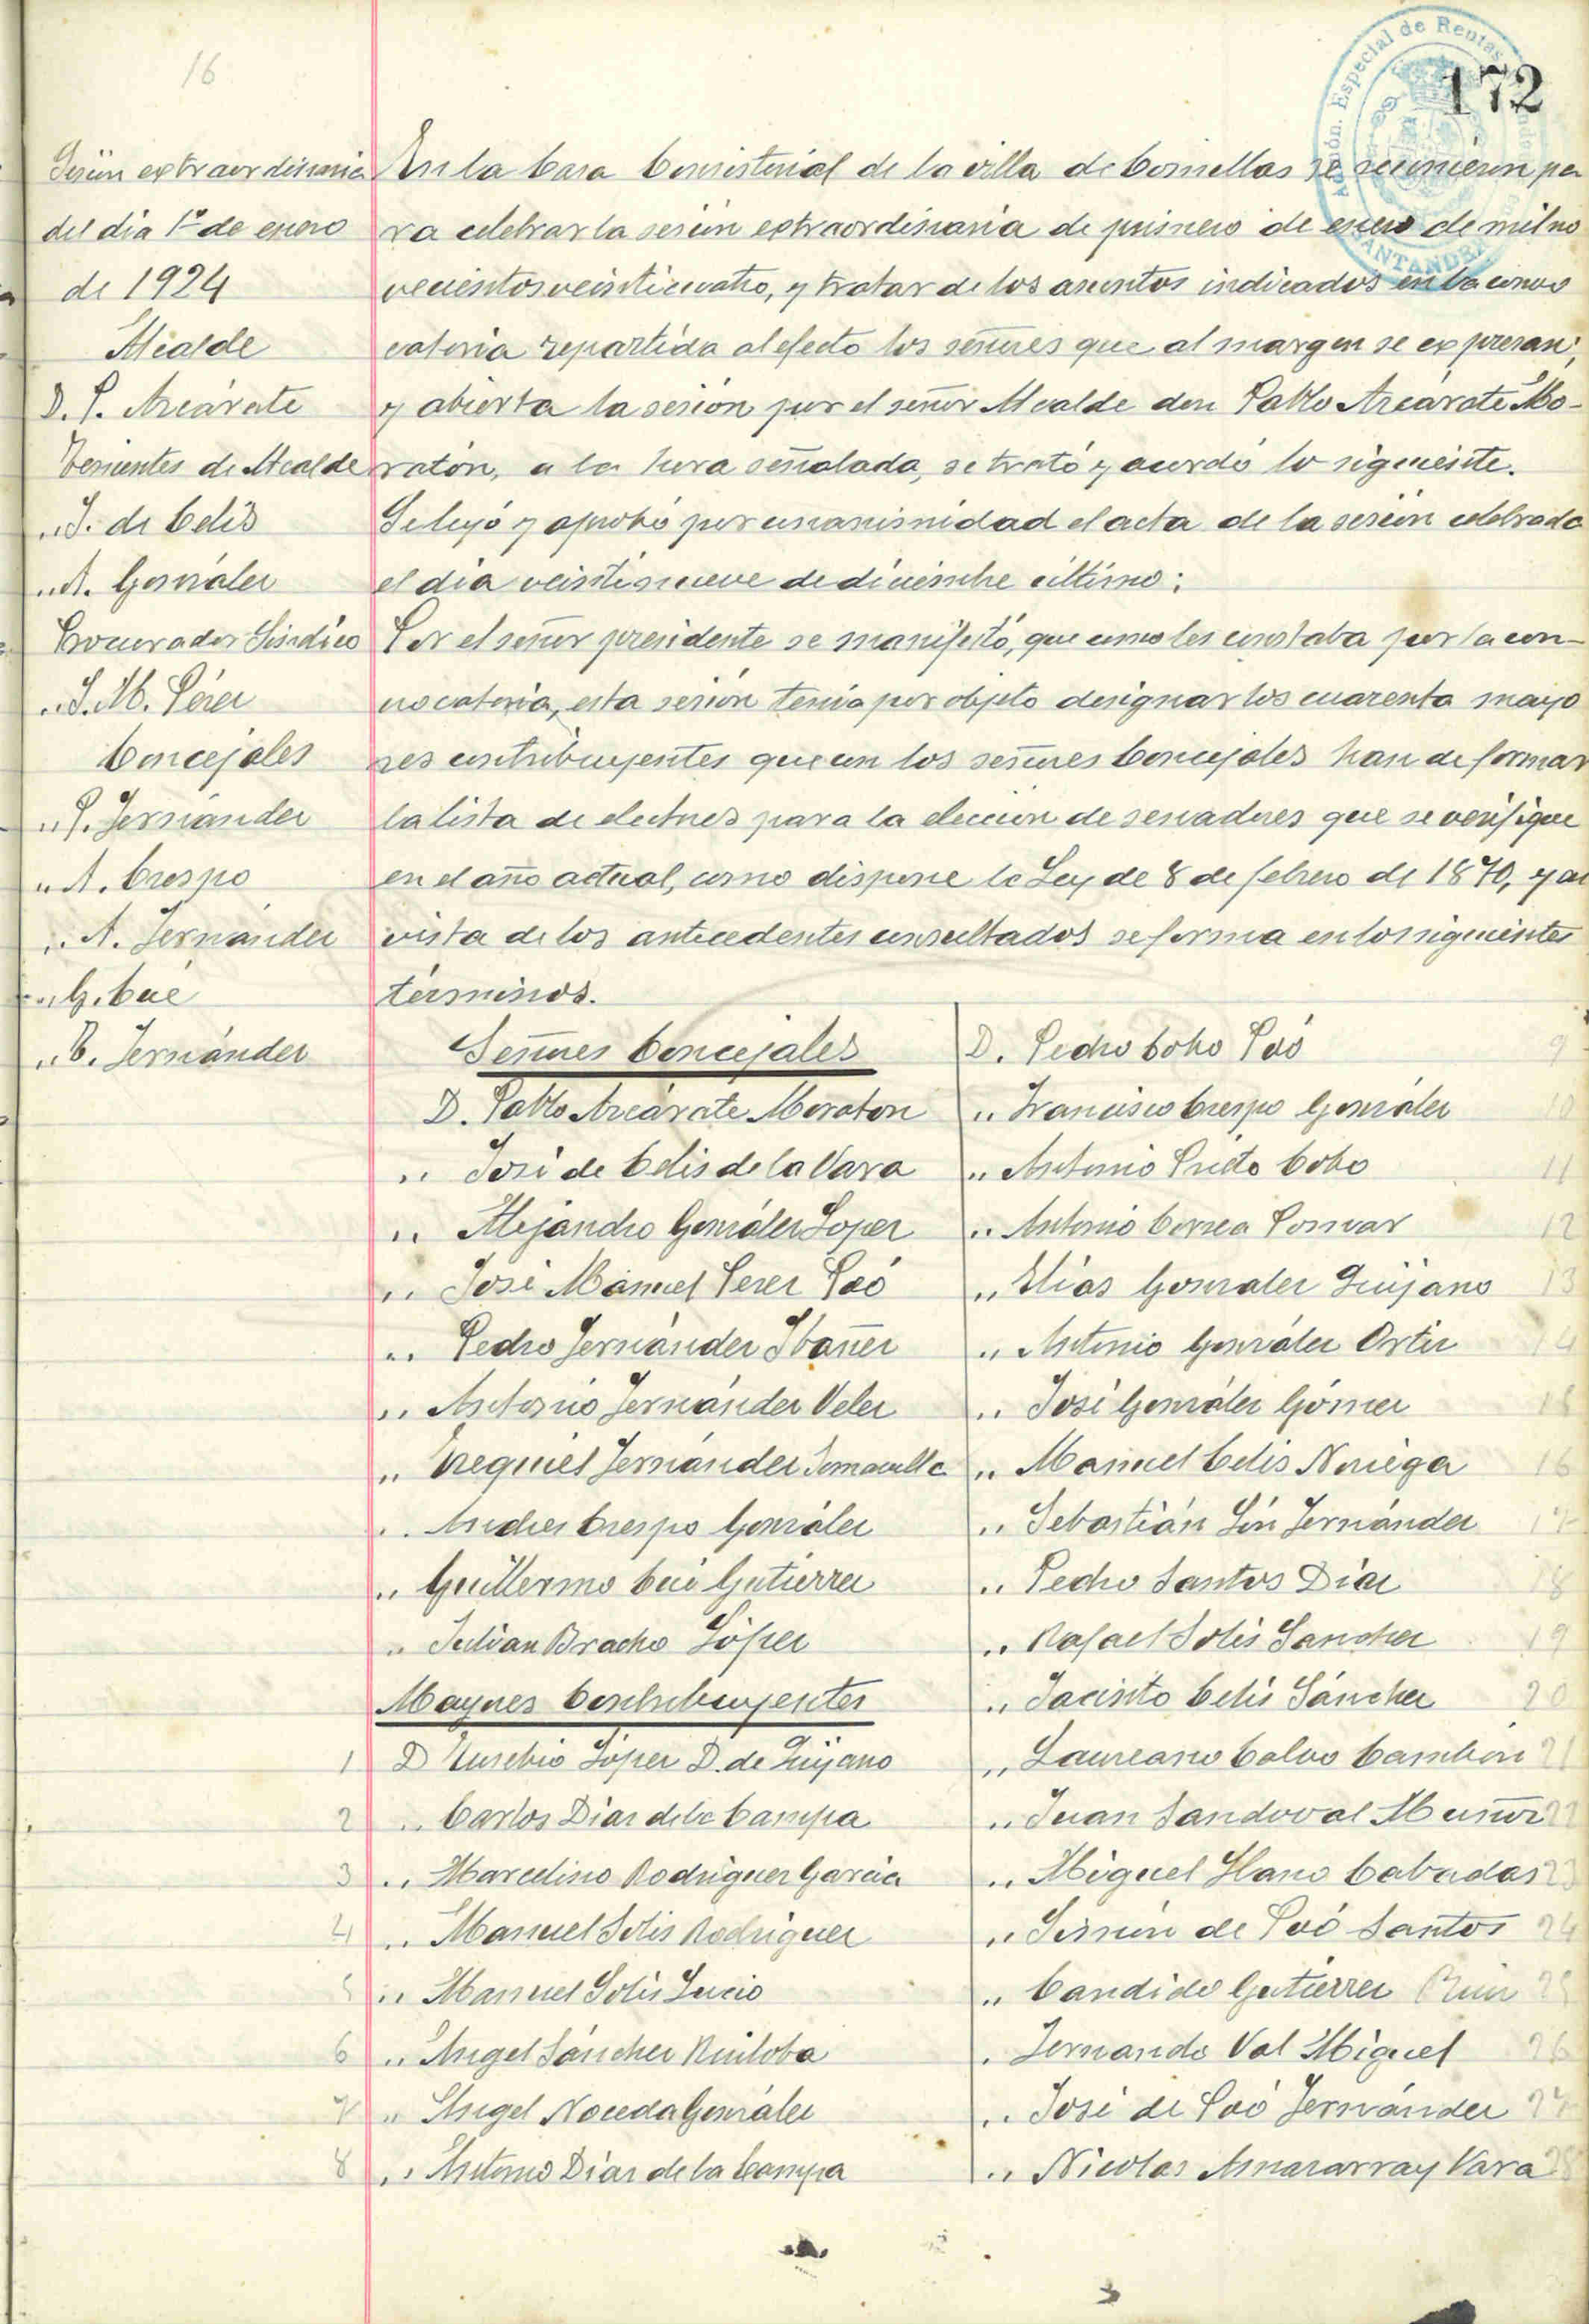 16
172
Admón. Especial de Rentas
SANTANDER
Sesión extraordinaria
del dia 1º de enero
de 1924
Alcalde
D. P. Azcárate
Tenientes de Alcalde
„ J. de Celis
„ A. González
Procurador Síndico
„ J. M. Pérez
Concejales
„ P. Fernández
„ A. Crespo
„ A. Fernández
„ G. Cué
„ E. Fernández
En la Casa Consistorial de la villa de Comillas se reunieron pa
ra celebrar la sesión extraordinaria de primero de enero de mil no
vecientos veinticuatro, y tratar de los asuntos indicados en la convo
catoria repartida al efecto los señores que al margen se expresan;
y abierta la sesión por el señor Alcalde don Pablo Azcárate Mo-
ratón, a la hora señalada, se trató y acordó lo siguiente.
Se leyó y aprobó por unanimidad el acta de la sesión celebrada
el dia veintinueve de diciembre último:
Por el señor presidente se manifestó, que como les constaba por la con-
vocatoria, esta sesión tenia por objeto designar los cuarenta mayo
res contribuyentes que con los señores Concejales han de formar
la lista de electores para la elección de senadores que se verifique
en el año actual, como dispone la Ley de 8 de febrero de 1870, y a
vista de los antecedentes consultados se forma en los siguientes
términos.
Señores Concejales
D. Pablo Azcárate Moraton
„ José de Celis de la Vara
„ Alejandro González Lopez
„ José Manuel Perez Poó
„ Pedro Fernández Ibañez
„ Antonio Fernández Velez
„ Ezequiel Fernández
„ Andres Crespo González
„ Guillermo Cué Gutierrez
„ Julian Bracho López
Mayores Contribuyentes
1 D Eusebio López D. de Quijano
2 „ Carlos Diaz de la Campa
3 „ Marcelino Rodriguez Garcia
4 „ Manuel Solis Rodriguez
5 „ Manuel Solis Lucio
6 „ Angel Sánchez Ruiloba
7 „ Angel Noceda González
8 „ Antonio Diaz de la Campa
D. Pedro Cobo Poó 9
„ Francisco Crespo González 10
„ Antonio Prieto Cobo 11
„ Antonio Correa Pomar 12
„ Elias Gonzalez Quijano 13
„ Antonio González Ortiz 14
„ José González Gómez 15
„ Manuel Celis Noriega 16
„ Sebastián Lín Fernández 17
„ Pedro Santos Diaz 18
„ Rafael Solis Sanchez 19
„ Jacinto Celis Sánchez 20
„ Laureano Calvo 21
„ Juan Sandoval Muñoz 22
„ Miguel Llano Cabadas 23
„ Simón de Poó Santos 24
„ Candido Gutierrez Ruiz 25
„ Fernando Val Miguel 26
„ José de Poó Fernández 27
„ Nicolas Amazarray Vara 28